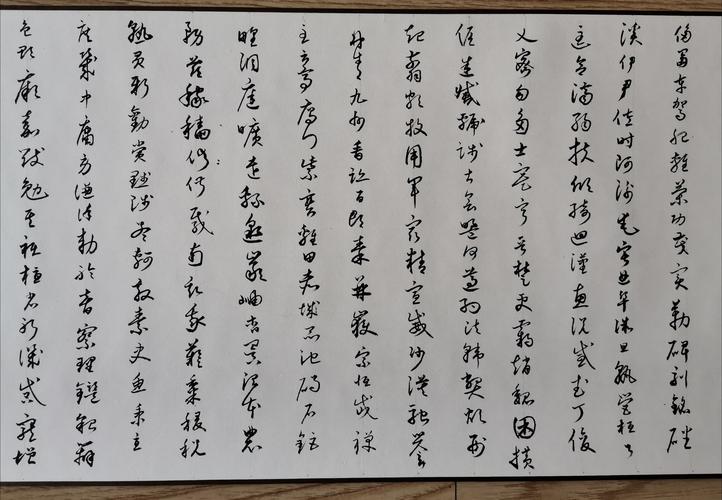 侈富車駕肥輕策功茂實勒碑刻銘磻
溪伊尹佐時阿衡奄宅曲阜微旦孰營桓公
匡合濟弱扶傾綺迴漢惠說感武丁俊
乂密勿多士寔寧晉楚更霸趙魏困橫
假途滅虢踐土會盟何遵約法韓弊煩刑
起翦頗牧用軍最精宣威沙漠馳譽
丹青九州禹跡百郡秦并嶽宗恆岱禪
主云亭雁門紫塞雞田赤城昆池碣石鉅
野洞庭曠遠綿邈巖岫杳冥治本於農
務茲稼穡俶載南畝我藝黍稷稅
熟貢新勸賞黜陟孟軻敦素史魚秉直
庶幾中庸勞謙謹敕聆音察理鑑貌辨
色貽厥嘉猷勉其祗植省躬譏誡寵增